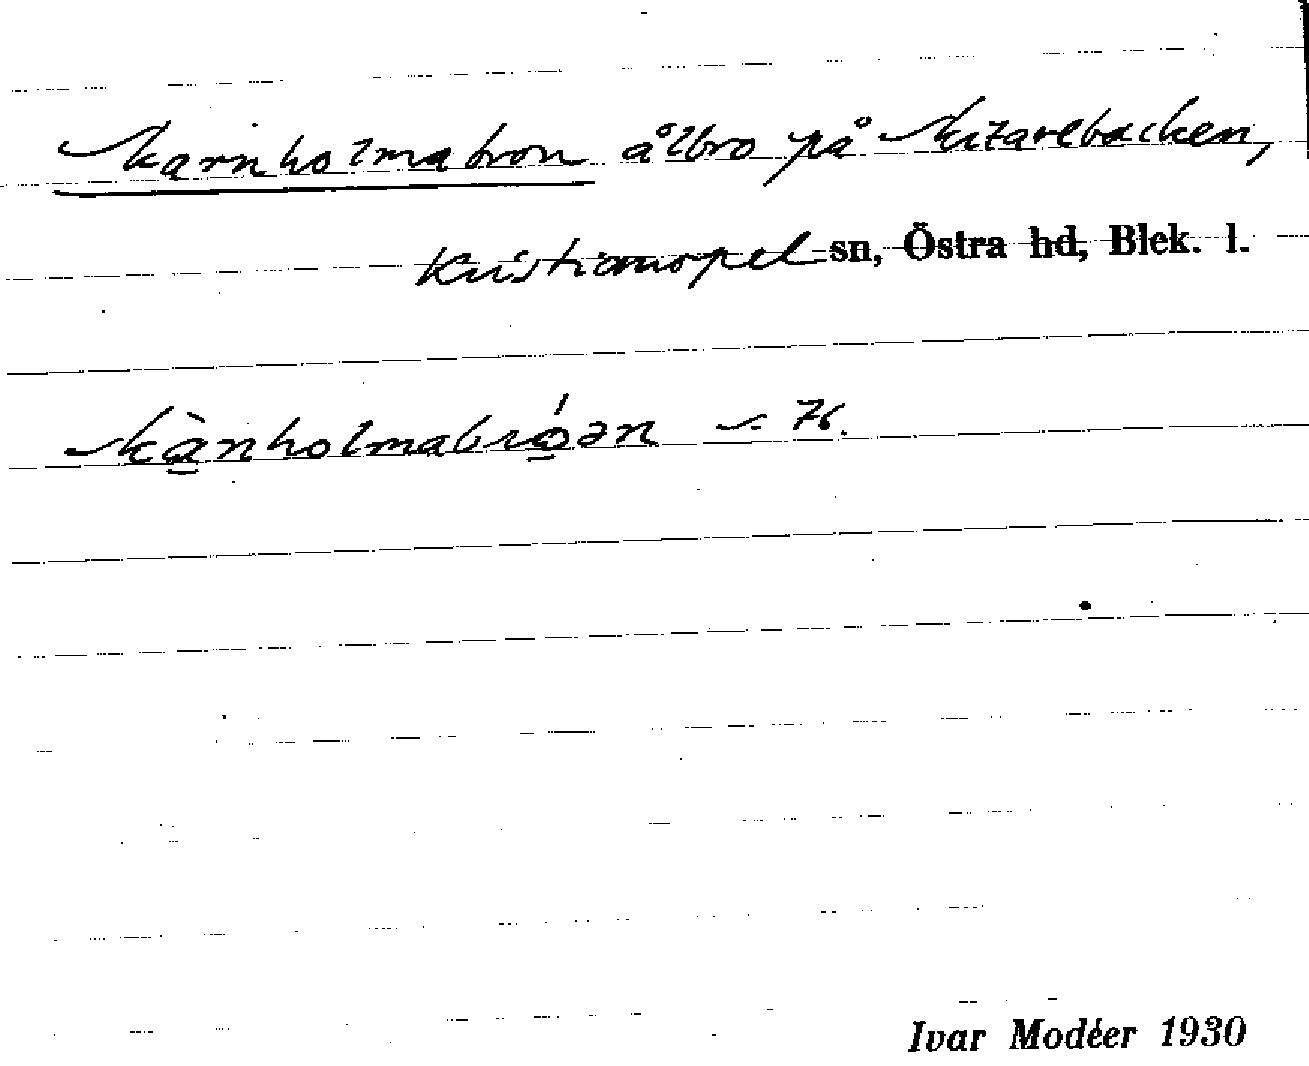 Skarnholmabron ålbro på Skitarebacken,
Kristianopel sn, Östra hd, Blek. l.
skànholmabróən 76.
Ivar Modéer 1930